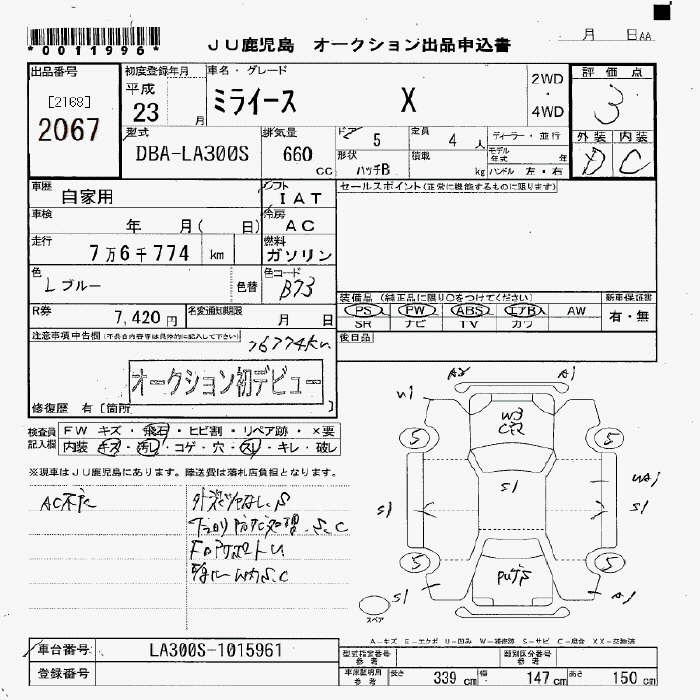 *0011996*
JU鹿児島 オークション出品申込書
月 日AA
出品番号
[2168]
2067
初度登録年月
平成
23 月
車名・グレード
ミライース X
2WD
・
4WD
評価点
3
外装 内装
D C
型式
DBA-LA300S
排気量
660 cc
ドア 5
定員 4 人
形状 ハッチB
積載 kg
ディーラー・並行
モデル年式 年
ハンドル 左・右
車歴
自家用
シフト
IAT
車検
年 月( 日)
冷房
AC
走行
7万6千774 km
燃料
ガソリン
色
Lブルー
色替
色コード
B73
R券
7,420 円
名変通知期限
月 日
セールスポイント(正常に機能するものに限ります)
装備品(純正品に限り○をつけてください)
PS PW ABS エアB AW
SR ナビ TV カワ
新車保証書
有・無
後日品
注意事項申告欄(不具合内容等は具体的に記入して下さい)
76774km
オークション初デビュー
修復歴 有[箇所
検査員記入欄
FW キズ・飛石・ヒビ割・リペア跡・×要
内装 キズ・汚し・コゲ・穴・スレ・キレ・破し
※現車はJU鹿児島にあります。陸送費は落札店負担となります。
AC不良
A2 A1
W1
W3
S1
S1
S1
S1
A1
5 5 5 5
スペア
A-キズ E-エクボ U-凹み W-補修跡 S-サビ C-腐食 XX-交換済
車台番号
LA300S-1015961
登録番号
型式指定番号
参考
類別区分番号
参考
車庫証明用
参考
長さ 339 cm
幅 147 cm
高さ 150 cm